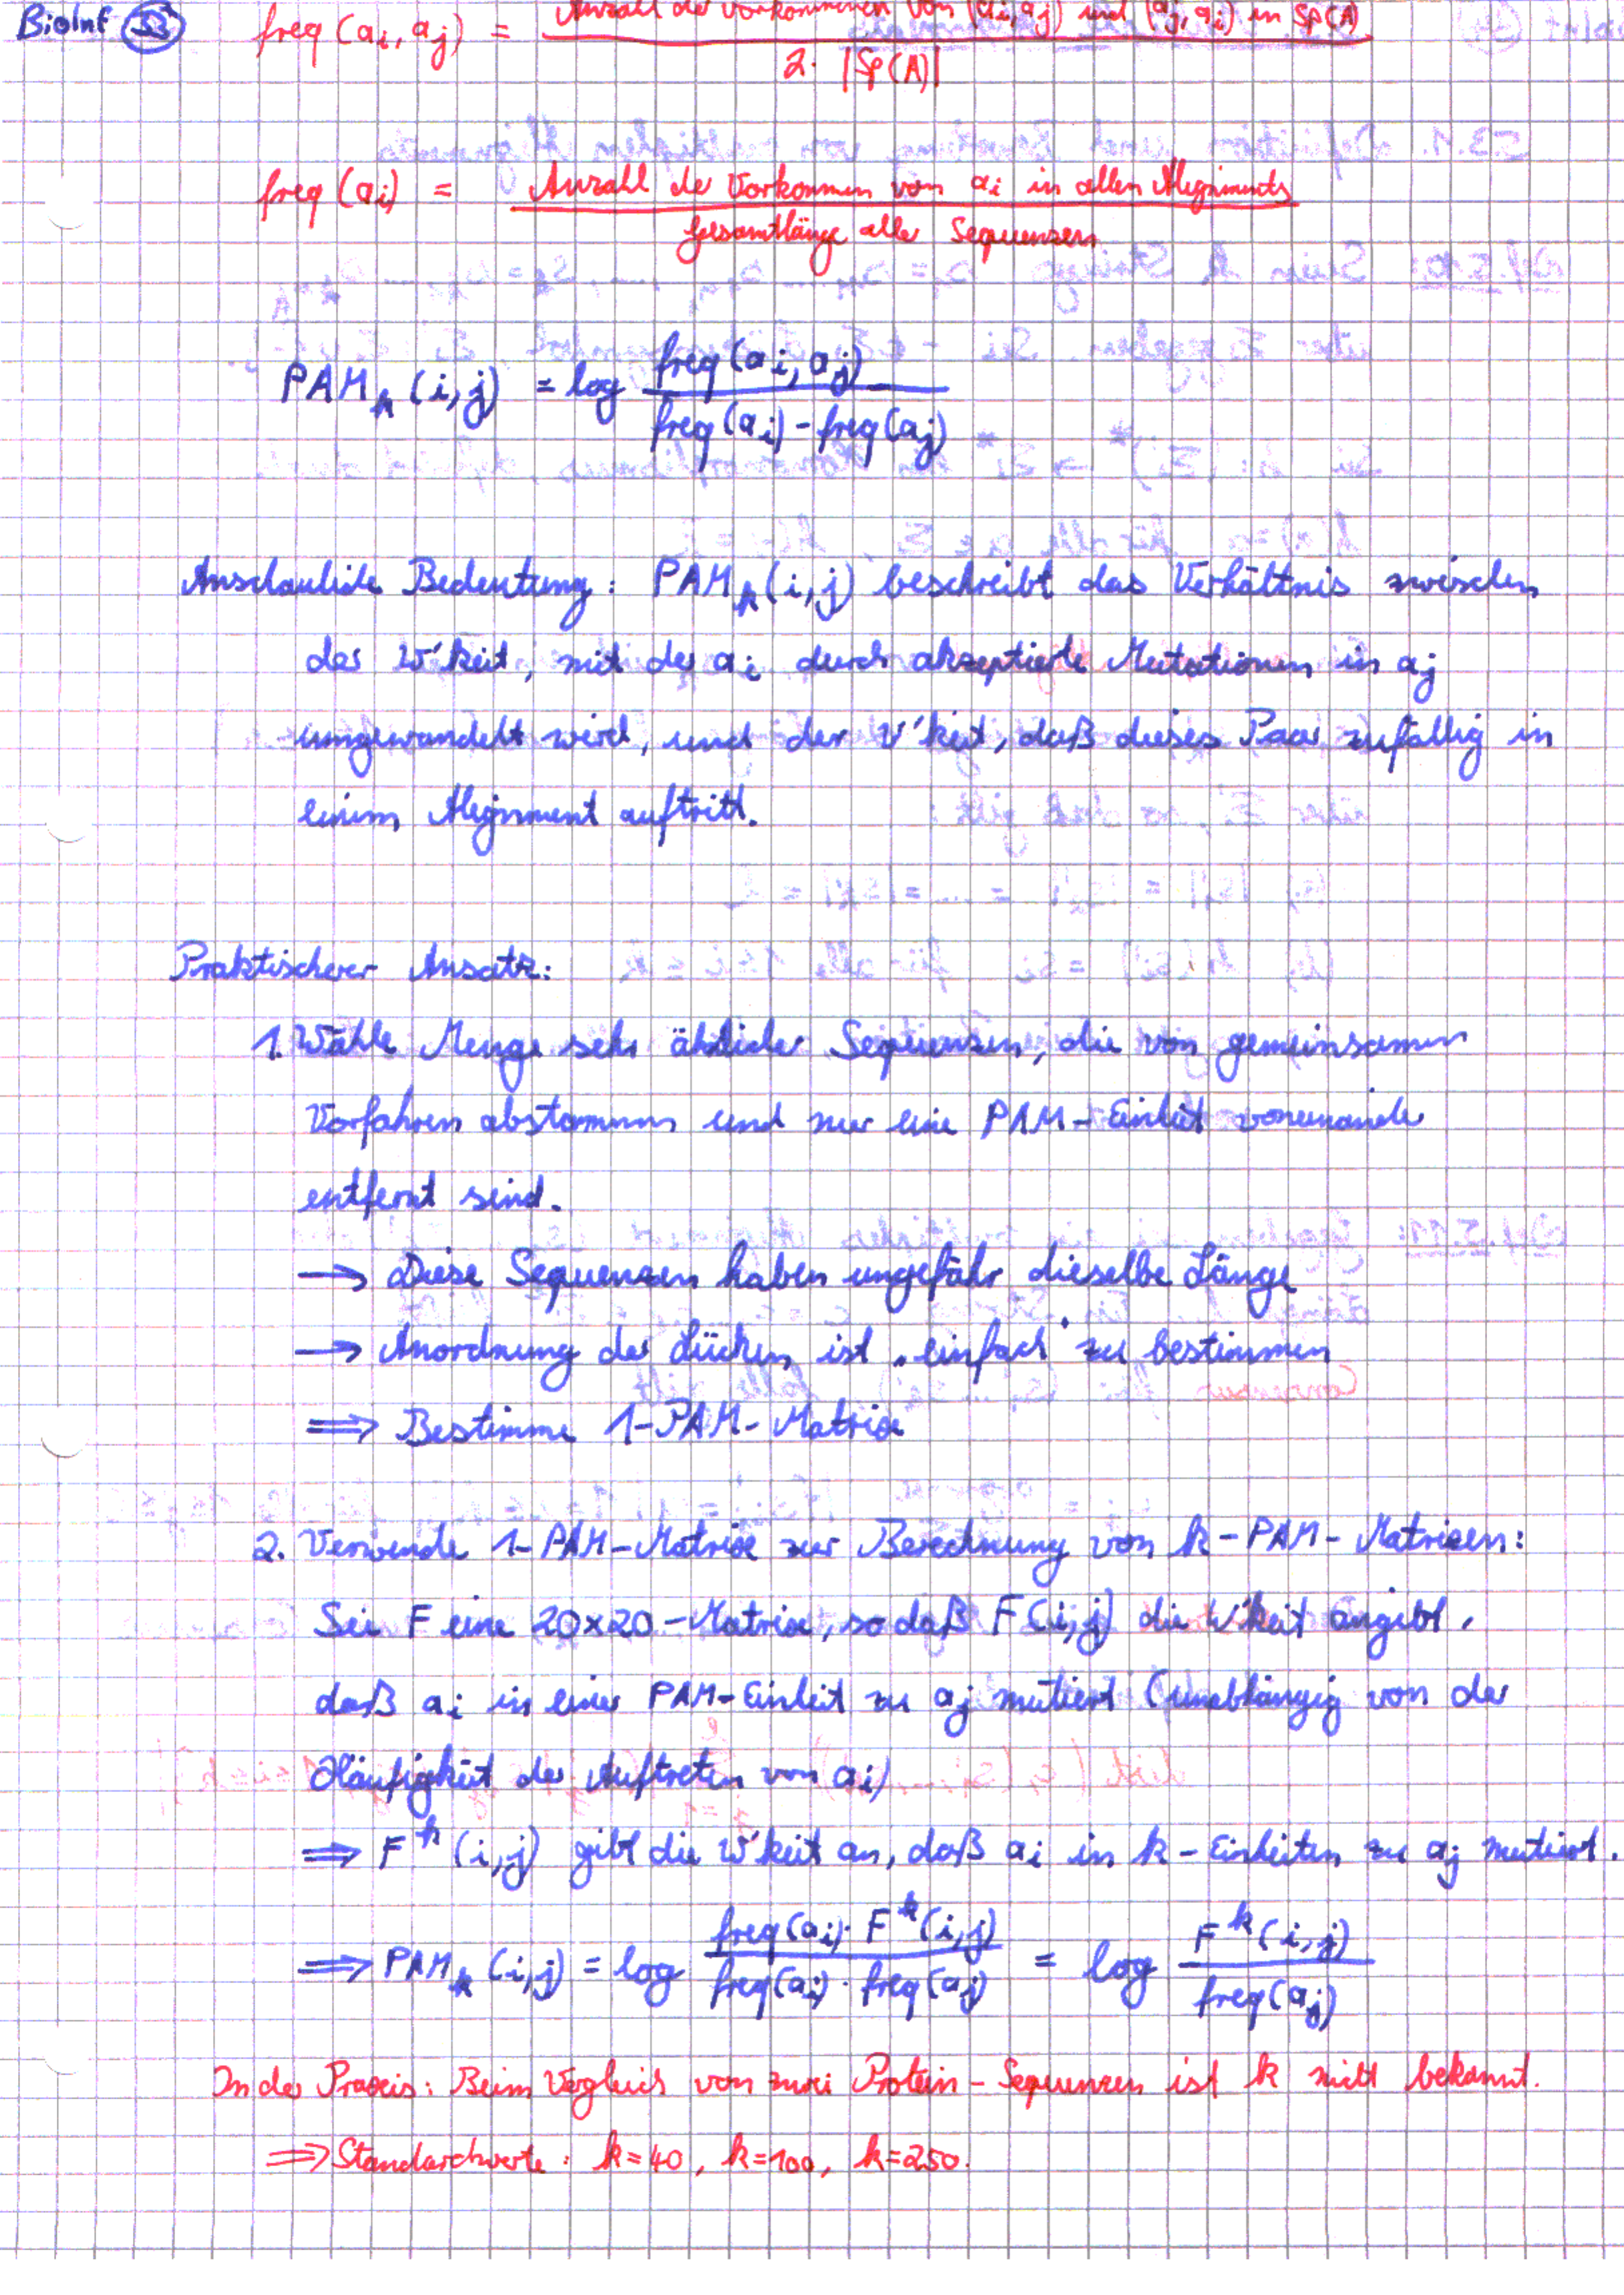 BioInf 33
freq (ai, aj) = Anzahl der Vorkommen von (ai, aj) und (aj, ai) in Sp(A)
2 · |Sp(A)|
freq (ai) = Anzahl der Vorkommen von ai in allen Alignments
Gesamtlänge aller Sequenzen
PAMk (i,j) = log freq (ai, aj)
freq (ai) - freq (aj)
Anschauliche Bedeutung: PAMk (i,j) beschreibt das Verhältnis zwischen
der W'keit, mit der ai durch akzeptierte Mutationen in aj
umgewandelt wird, und der W'keit, daß dieses Paar zufällig in
einem Alignment auftritt.
Praktischer Ansatz:
1. Wähle Menge sehr ähnlicher Sequenzen, die von gemeinsamen
Vorfahren abstammen und nur eine PAM-Einheit voneinander
entfernt sind.
→ Diese Sequenzen haben ungefähr dieselbe Länge
→ Anordnung der Lücken ist „einfach" zu bestimmen
⟹ Bestimme 1-PAM-Matrix
2. Verwende 1-PAM-Matrix zur Berechnung von k-PAM-Matrizen:
Sei F eine 20×20-Matrix, so daß F(i,j) die W'keit angibt,
daß ai in einer PAM-Einheit zu aj mutiert (unabhängig von der
Häufigkeit des Auftretens von ai)
⟹ F^k (i,j) gibt die W'keit an, daß ai in k-Einheiten zu aj mutiert.
⟹ PAMk (i,j) = log freq(ai) · F^k(i,j) = log F^k(i,j)
freq(ai) · freq(aj) freq(aj)
In der Praxis: Beim Vergleich von zwei Protein-Sequenzen ist k nicht bekannt.
⟹ Standardwerte: k=40, k=100, k=250.